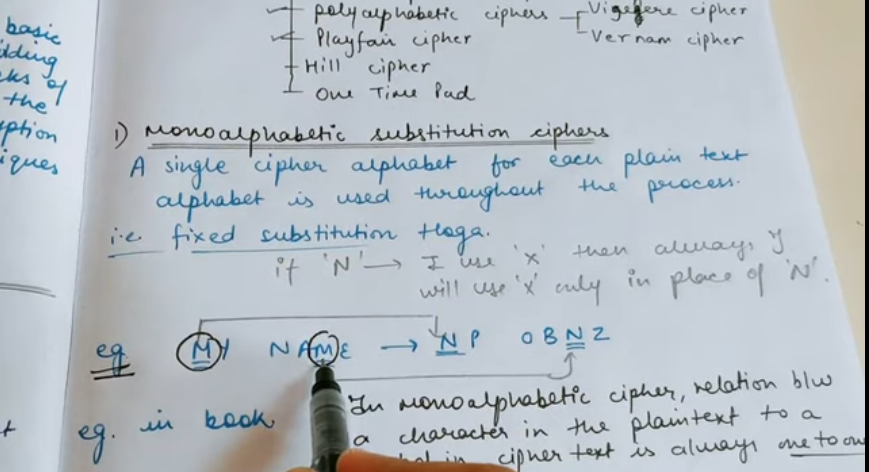 basic
dding
cks of
the
ption
iques
polyalphabetic ciphers
Vigegere cipher
Vernam cipher
Playfair cipher
Hill cipher
One Time Pad
1) Monoalphabetic substitution ciphers
A single cipher alphabet for each plain text
alphabet is used throughout the process.
i.e fixed substitution Hoga.
if 'N' → I use 'x' then always I
will use 'x' only in place of 'N'.
eg MY NAME → NP OBNZ
eg. in book
In monoalphabetic cipher, relation b/w
a character in the plaintext to a
in cipher text is always one to on